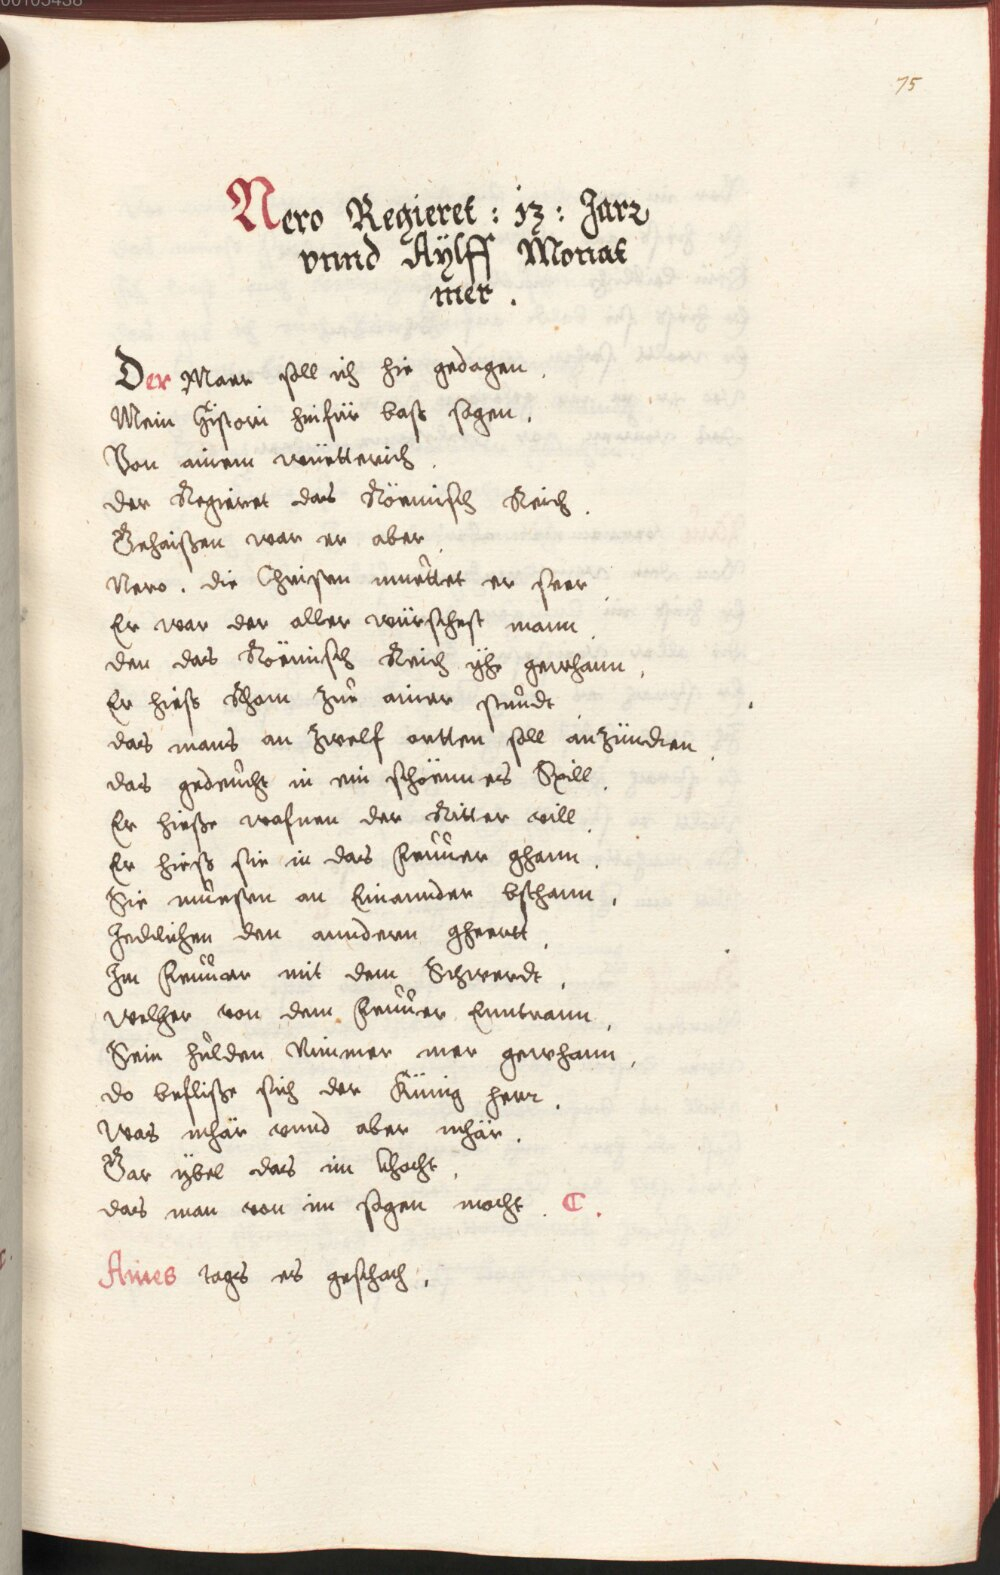 00103438
75
Nero Regieret : 13 : Jare
vnnd Aÿlff Monat
mer .
Der Maer soll ich hie gedagen .
Mein Histori hinfür bast sagen .
Von ainem wüetterich .
der Regieret das Römisch Reich .
Gehaissen war er aber .
Nero . die Christen muettet er seer .
Er war der aller würschest mann .
den das Römisch Reich ÿhe gewhann .
Er hiess Rhom zue ainer stundt .
das mans an zwelf ortten soll anzünden .
das gedeucht in ein schönnes Spill .
Er hiesse wafnen der Ritter vill .
Er hiess sie in das Feuuer ghann .
Sie muessen an Einannder bschann .
Jedlichen den anndern gheertt .
Im Feuuer mit dem Schwerdt .
welher von dem Feuuer Enntrann .
Sein hulden Nimmer mer gewhann .
do beflisse sich der Künig herr .
was mhär vnnd aber mhär .
Gar ÿbel das im khocht .
das man von im sagen mocht . C .
Aines tags es geschach .